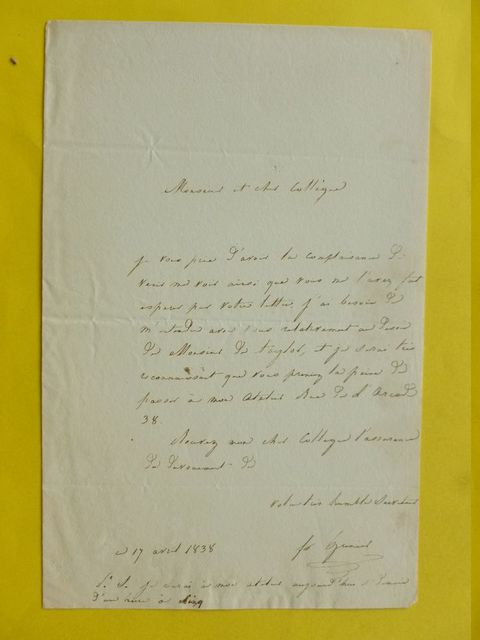 Monsieur et cher Collègue
Je vous prie d'avoir la complaisance de
venir me voir ainsi que vous me l'avez fait
esperer par votre lettre, j'ai besoin de
m'entendre avec vous relativement au
de Monsieur de et je serai très
reconnaissant que vous preniez la peine de
passer à mon atelier Rue de
38.
Recevez mon cher Collègue l'assurance
du devouement de
votre très humble Serviteur
ce 17 avril 1838
P. S. Je serai à mon atelier aujourd'hui et demain
d'une heure à cinq